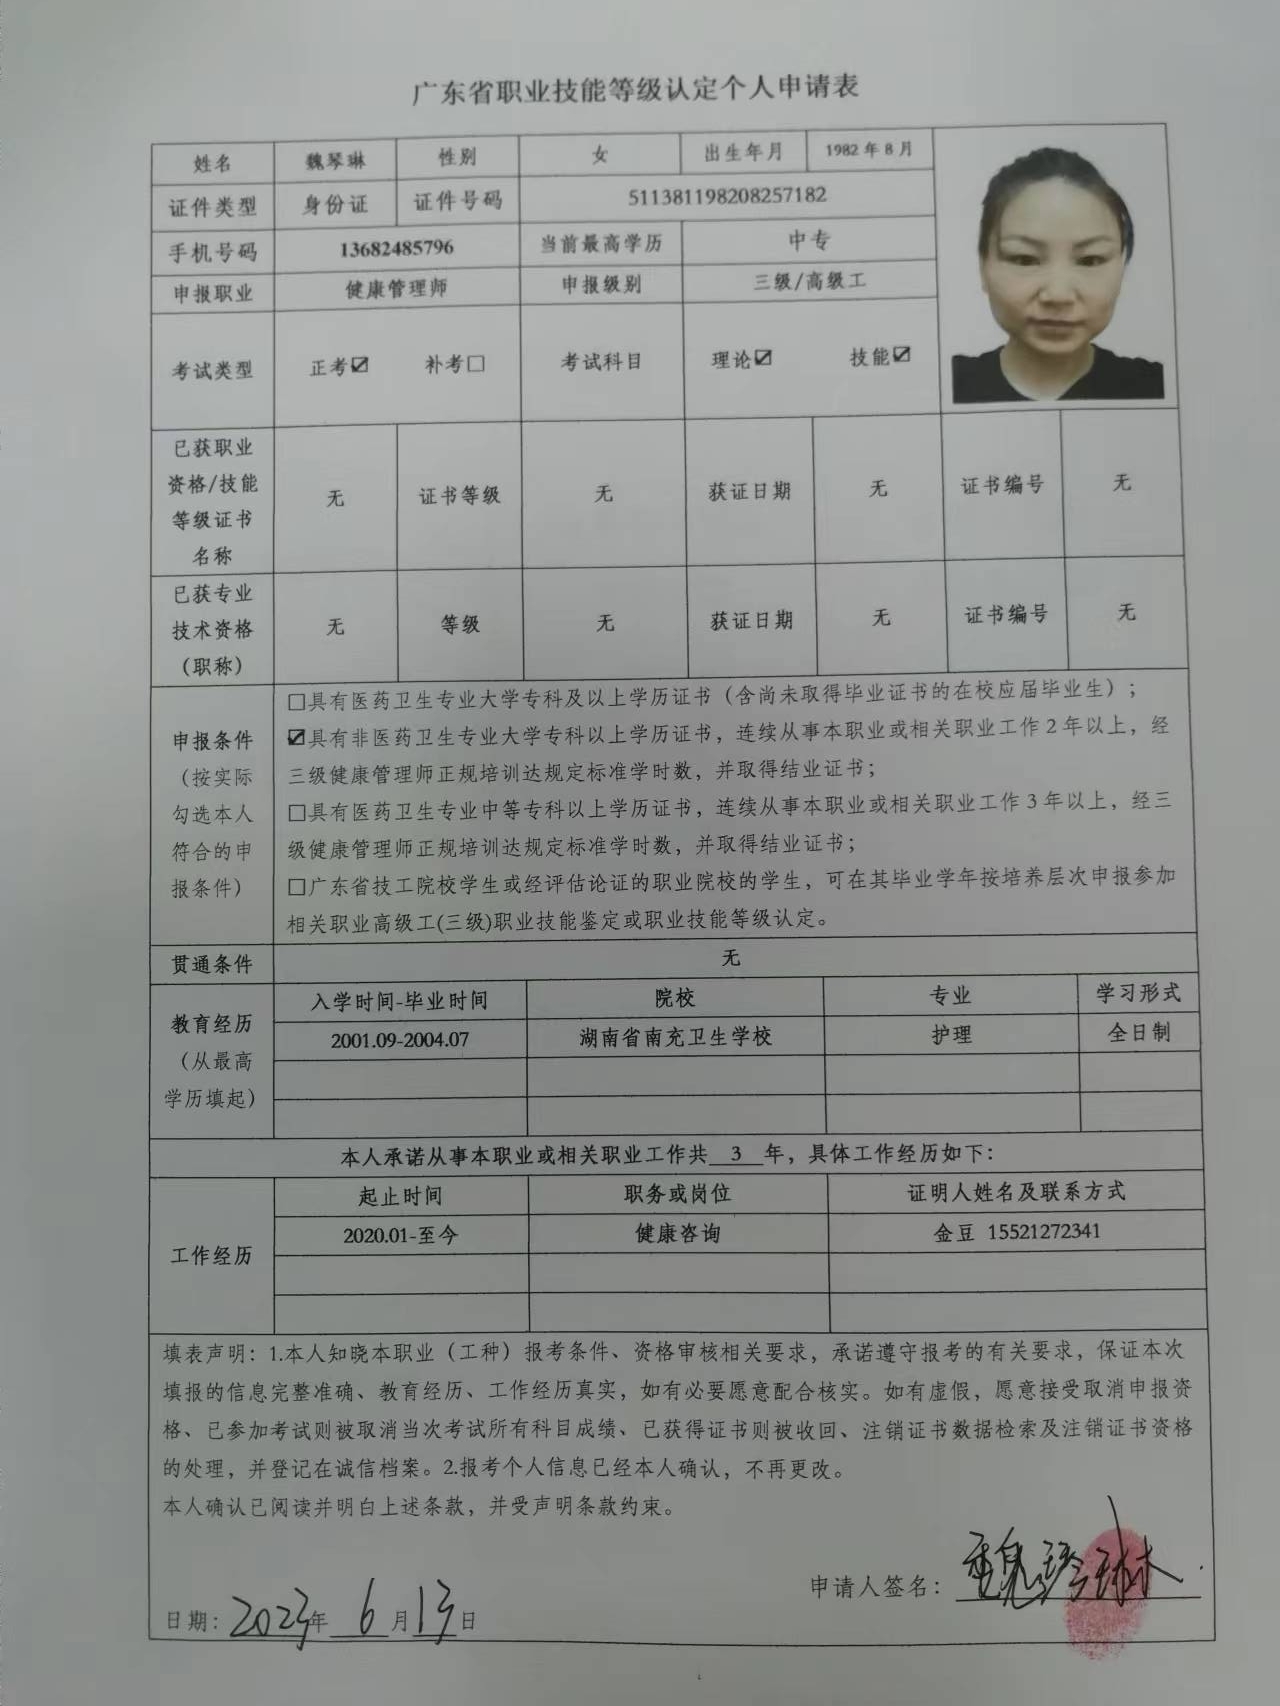 广东省职业技能等级认定个人申请表
姓名 魏琴琳 性别 女 出生年月 1982年8月
证件类型 身份证 证件号码 511381198208257182
手机号码 13682485796 当前最高学历 中专
申报职业 健康管理师 申报级别 三级/高级工
考试类型 正考☑ 补考☐ 考试科目 理论☑ 技能☑
已获职业
资格/技能
等级证书
名称
无 证书等级 无 获证日期 无 证书编号 无
已获专业
技术资格
（职称）
无 等级 无 获证日期 无 证书编号 无
申报条件
（按实际
勾选本人
符合的申
报条件）
☐具有医药卫生专业大学专科及以上学历证书（含尚未取得毕业证书的在校应届毕业生）；
☑具有非医药卫生专业大学专科以上学历证书，连续从事本职业或相关职业工作2年以上，经
三级健康管理师正规培训达规定标准学时数，并取得结业证书；
☐具有医药卫生专业中等专科以上学历证书，连续从事本职业或相关职业工作3年以上，经三
级健康管理师正规培训达规定标准学时数，并取得结业证书；
☐广东省技工院校学生或经评估论证的职业院校的学生，可在其毕业学年按培养层次申报参加
相关职业高级工(三级)职业技能鉴定或职业技能等级认定。
贯通条件 无
教育经历
（从最高
学历填起）
入学时间-毕业时间 院校 专业 学习形式
2001.09-2004.07 湖南省南充卫生学校 护理 全日制
本人承诺从事本职业或相关职业工作共 3 年，具体工作经历如下：
工作经历
起止时间 职务或岗位 证明人姓名及联系方式
2020.01-至今 健康咨询 金豆 15521272341
填表声明：1.本人知晓本职业（工种）报考条件、资格审核相关要求，承诺遵守报考的有关要求，保证本次
填报的信息完整准确、教育经历、工作经历真实，如有必要愿意配合核实。如有虚假，愿意接受取消申报资
格、已参加考试则被取消当次考试所有科目成绩、已获得证书则被收回、注销证书数据检索及注销证书资格
的处理，并登记在诚信档案。2.报考个人信息已经本人确认，不再更改。
本人确认已阅读并明白上述条款，并受声明条款约束。
申请人签名：魏琴琳
日期：2023年6月13日